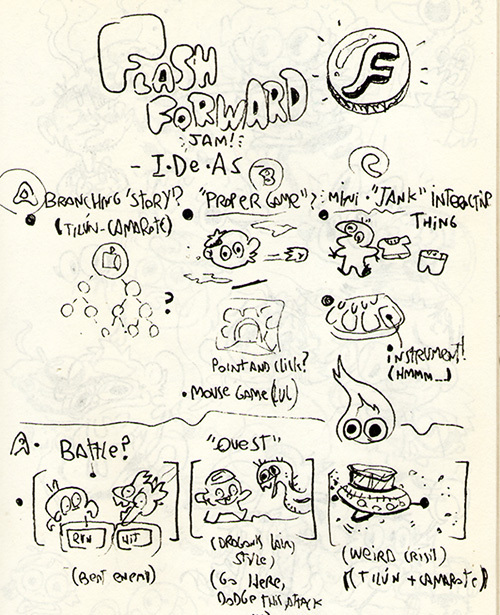 FLASH
FORWARD
JAM!
- I·De·As
A BRANCHING "STORY"?
(TILÚN-CAMAROTE)
?
B
"PROPER GAME"?
POINT AND CLICK?
• MOUSE GAME (LUL)
C
MINI • "JANK" INTERACTIVE
THING
• INSTRUMENT!
(HMMM...)
A• BATTLE?
RUN HIT
(BEAT ENEMY)
"QUEST"
(DRAGONS LAIR
STYLE)
(GO HERE,
DODGE THIS ATTACK
(WEIRD CRISIS)
(TILÚN + CAMAROTE)